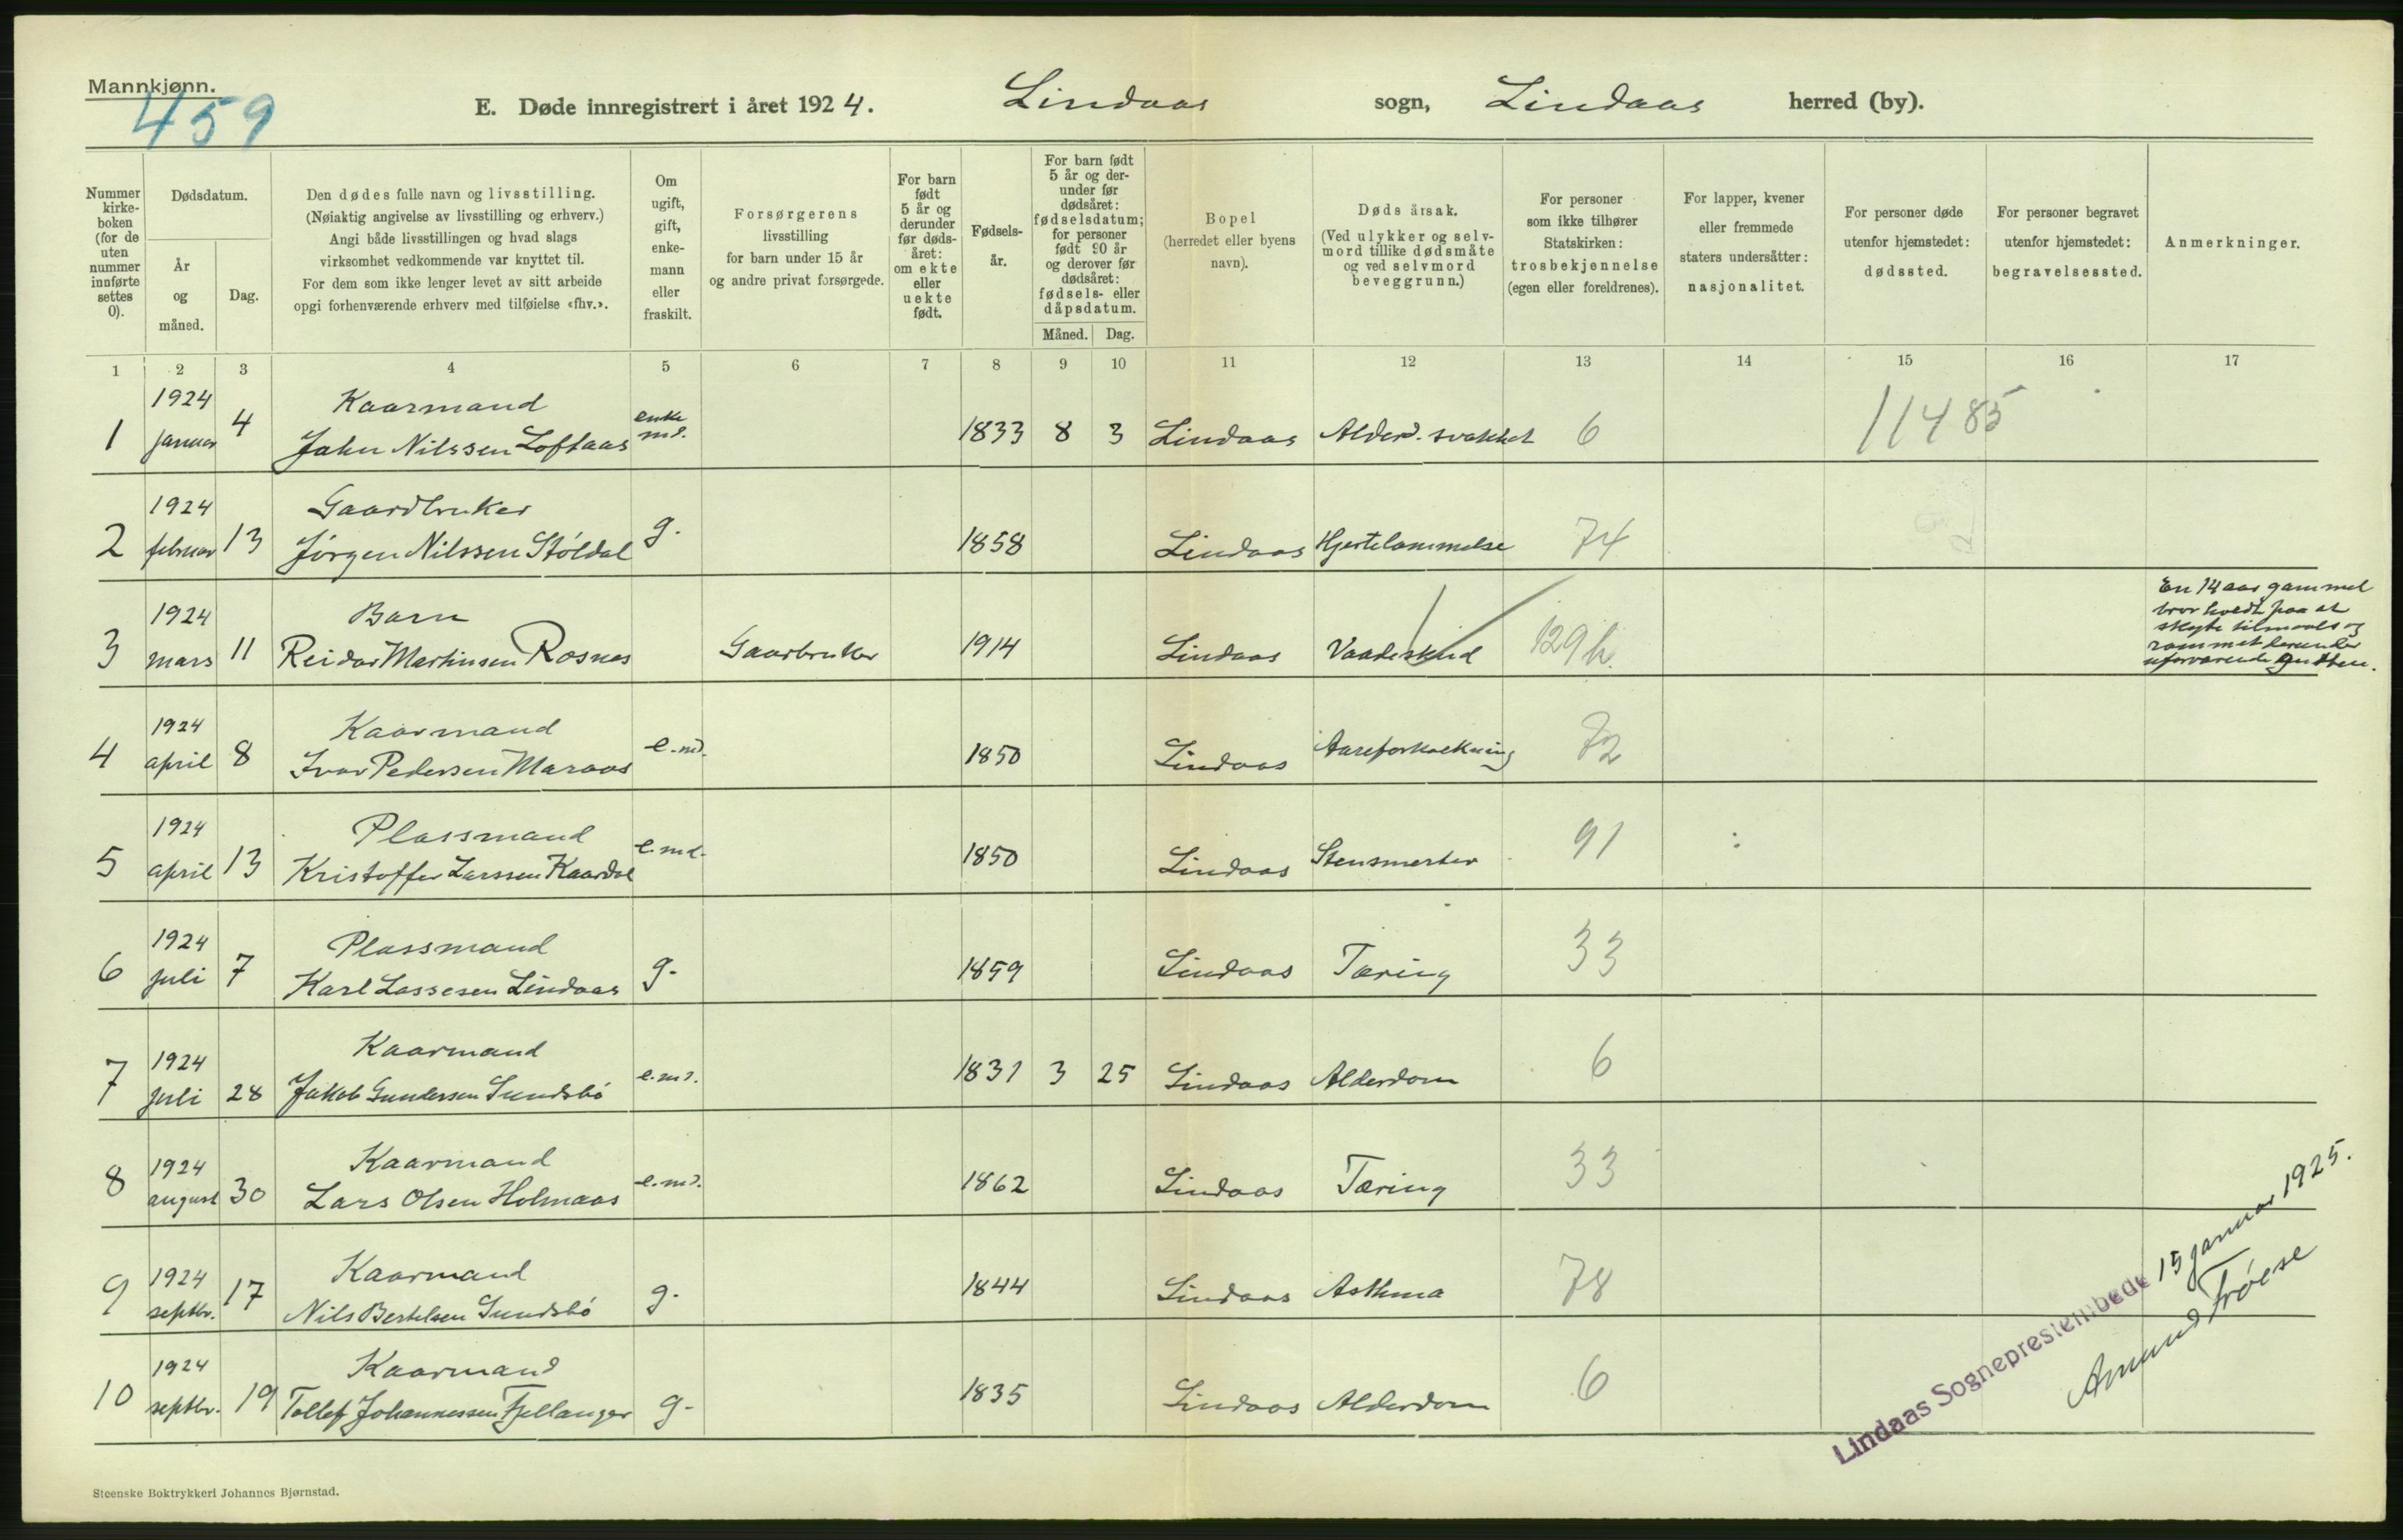 Mannkjønn.
459
E. Døde innregistrert i året 1924. Lindaas sogn, Lindaas herred (by).
Nummer kirke-boken (for de uten nummer innførte settes 0).
Dødsdatum.
År og måned.
Dag.
Den dødes fulle navn og livsstilling.
(Nøiaktig angivelse av livsstilling og erhverv.)
Angi både livsstillingen og hvad slags
virksomhet vedkommende var knyttet til.
For dem som ikke lenger levet av sitt arbeide
opgi forhenværende erhverv med tilføielse «fhv.».
Om ugift, gift, enke-mann eller fraskilt.
Forsørgerens
livsstilling
for barn under 15 år
og andre privat forsørgede.
For barn født 5 år og derunder før døds-året: om ekte eller uekte født.
Fødsels-år.
For barn født 5 år og der-under før dødsåret: fødselsdatum; for personer født 90 år og derover før dødsåret: fødsels- eller dåpsdatum.
Måned. Dag.
Bopel
(herredet eller byens
navn).
Dødsårsak.
(Ved ulykker og selv-
mord tillike dødsmåte
og ved selvmord
beveggrunn.)
For personer
som ikke tilhører
Statskirken:
trosbekjennelse
(egen eller foreldrenes).
For lapper, kvener
eller fremmede
staters undersåtter:
nasjonalitet.
For personer døde
utenfor hjemstedet:
dødssted.
For personer begravet
utenfor hjemstedet:
begravelsessted.
Anmerkninger.
1 2 3 4 5 6 7 8 9 10 11 12 13 14 15 16 17
1924 Kaarmand enke
1 januar 4 John Nilssen Loftaas md. 1833 8 3 Lindaas Alderd. svakhet 6 11485
1924 Gaardbruker
2 februar 13 Jörgen Nilssen Stöldal g. 1858 Lindaas Hjertelammelse 74
1924 Barn
3 mars 11 Reidar Martinsen Rosnes Gaarbruker 1914 Lindaas Vaadeskud 129 h.
En 14 aar gammel
bror holdt paa at
skyte tilmaals og
rammet herunder
uforvarende gutten.
1924 Kaarmand
4 april 8 Ivar Pedersen Maraas e.md. 1850 Lindaas Aareforkalkning 72
1924 Plassmand
5 april 13 Kristoffer Larssen Kaardal e.md. 1850 Lindaas Stensmerter 91
1924 Plassmand
6 juli 7 Karl Lassesen Lindaas g. 1859 Lindaas Tæring 33
1924 Kaarmand
7 juli 28 Jakob Gundersen Sundsbö e.md. 1831 3 25 Lindaas Alderdom 6
1924 Kaarmand
8 august 30 Lars Olsen Holmaas e.md. 1862 Lindaas Tæring 33
1924 Kaarmand
9 septbr. 17 Nils Bertelsen Sundsbö g. 1844 Lindaas Asthma 78
1924 Kaarmand
10 septbr. 19 Tollef Johannessen Fjellanger g. 1835 Lindaas Alderdom 6
Lindaas Sogneprestembede 15 januar 1925.
Amund Tröese
Steenske Boktrykkeri Johannes Bjørnstad.